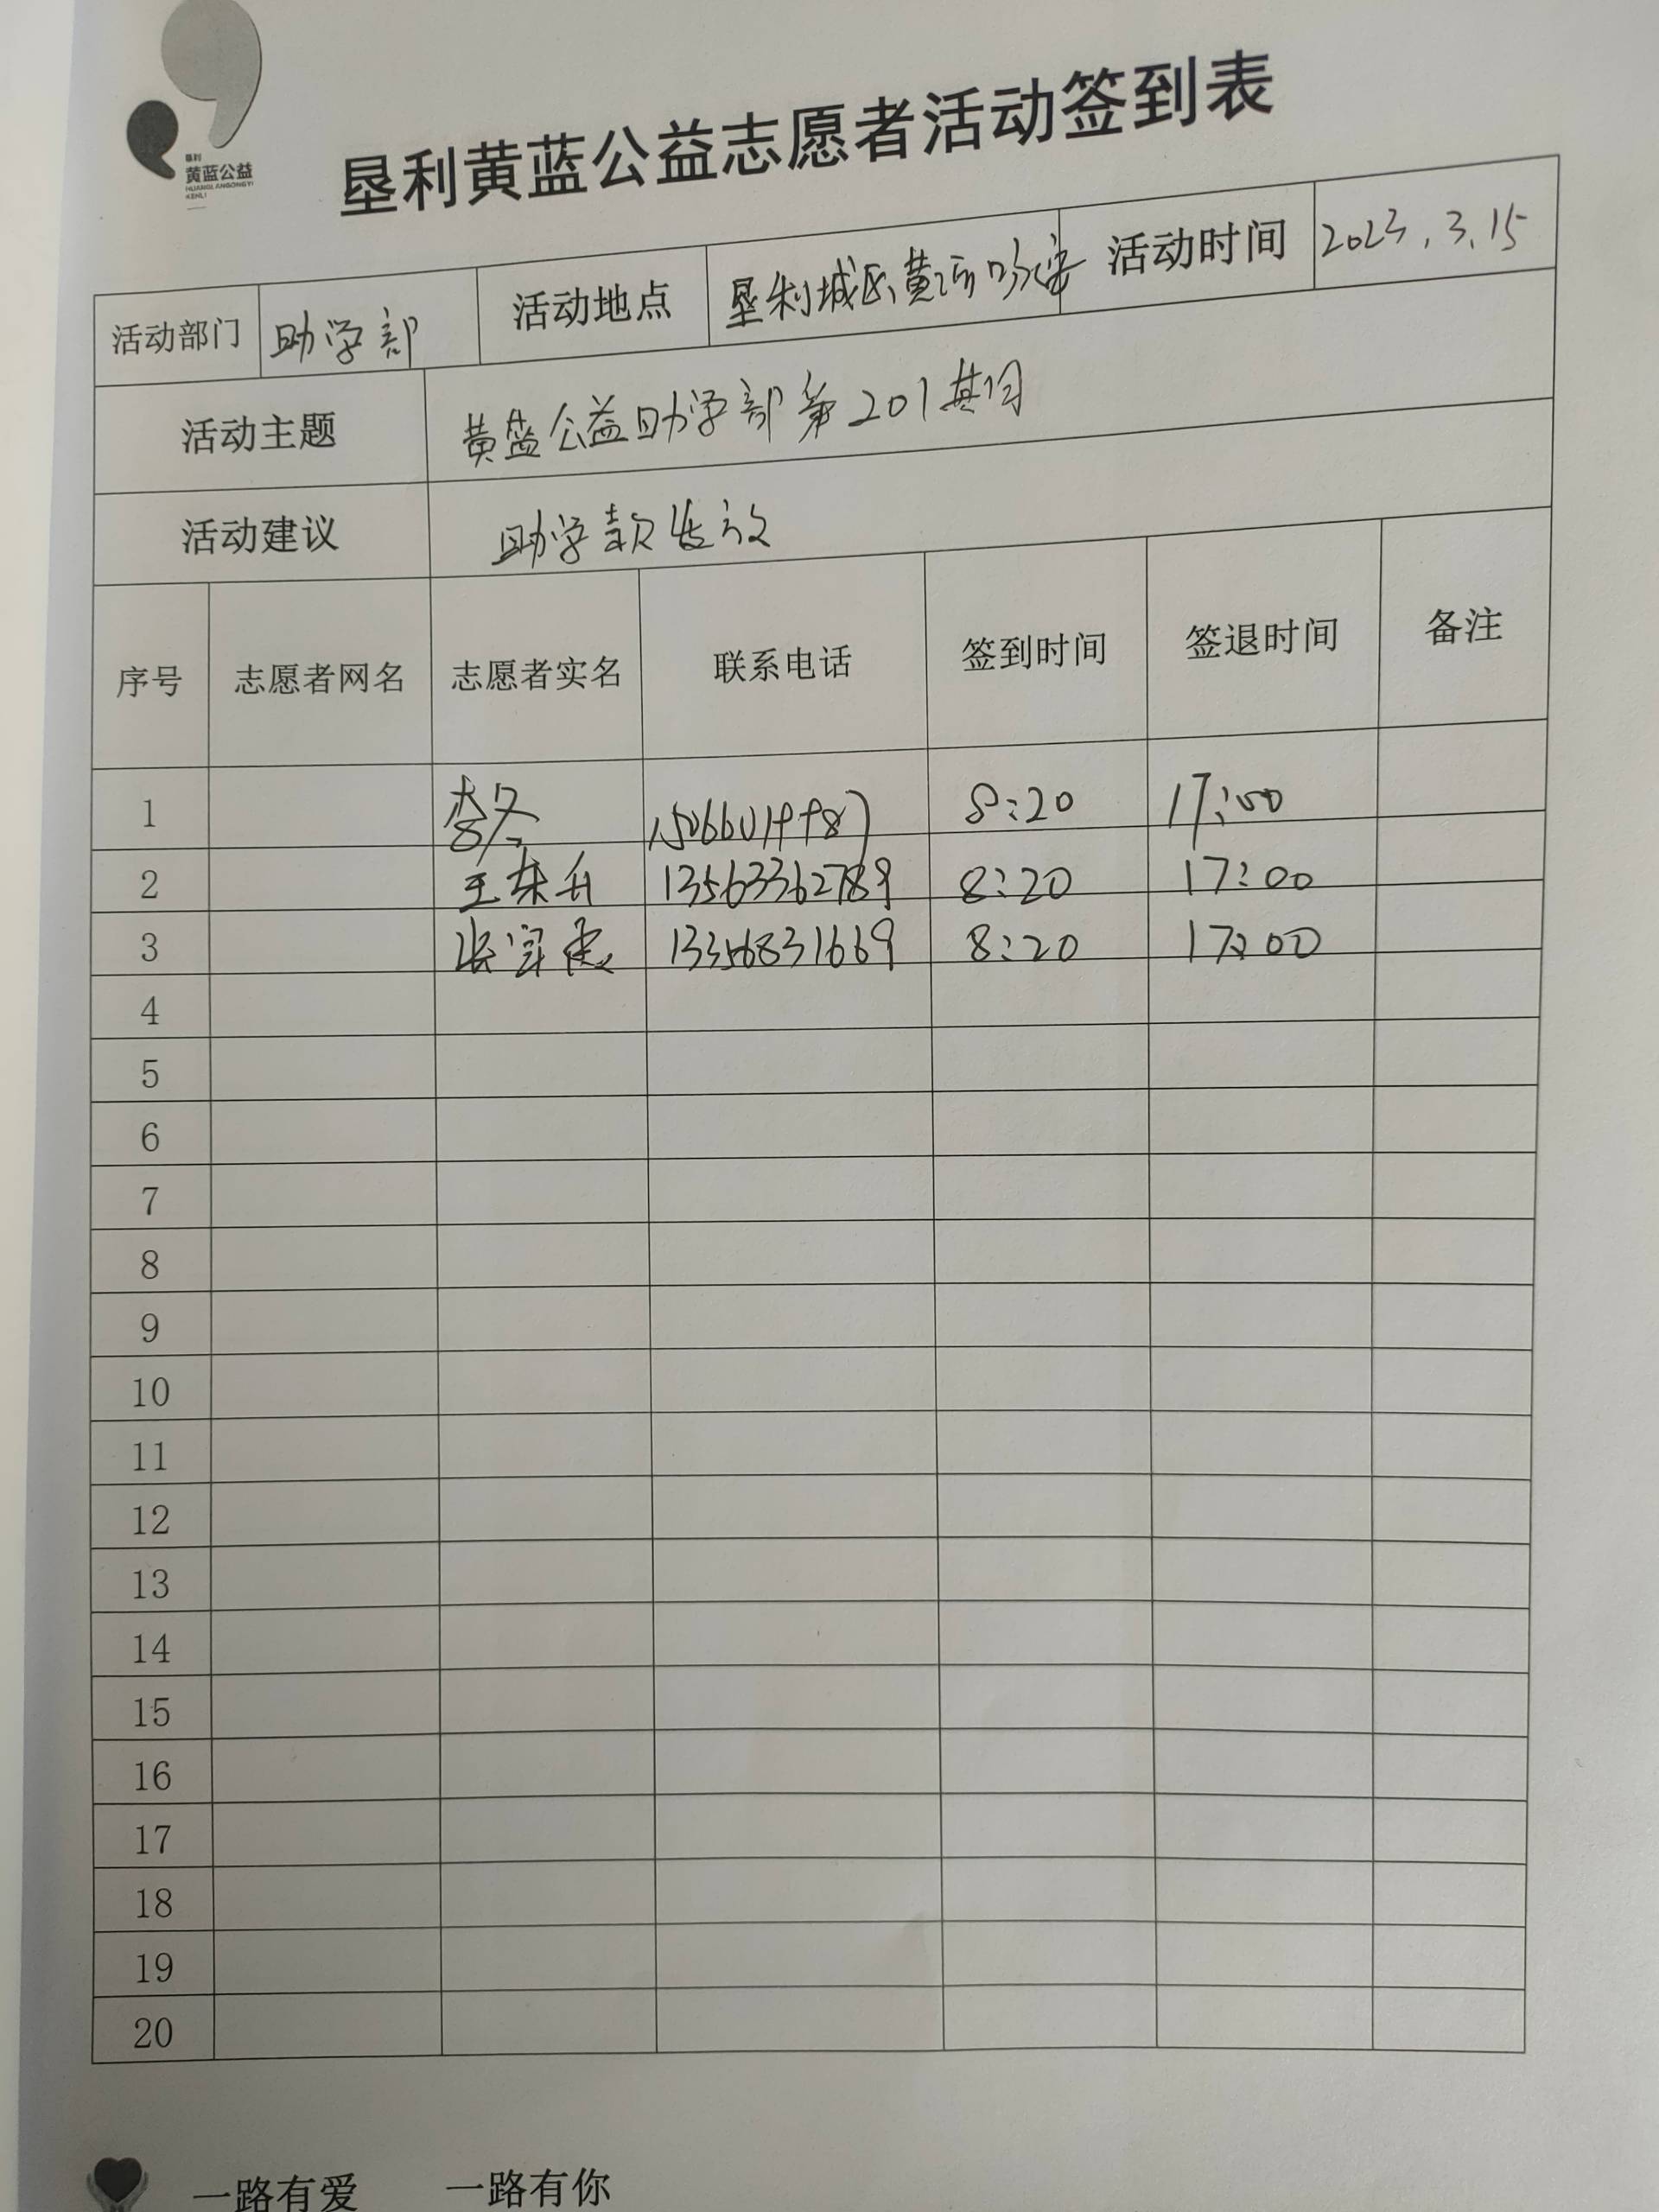 垦利
黄蓝公益
HUANGLANGONGYI
KENLI
垦利黄蓝公益志愿者活动签到表
活动部门 助学部 活动地点 垦利城区、黄河口镇 活动时间 2023.3.15
活动主题 黄蓝公益助学部第201期
活动建议 助学款发放
序号 志愿者网名 志愿者实名 联系电话 签到时间 签退时间 备注
1 8:20 17:00
2 王东升 13563362789 8:20 17:00
3 13356831669 8:20 17:00
4
5
6
7
8
9
10
11
12
13
14
15
16
17
18
19
20
一路有爱 一路有你